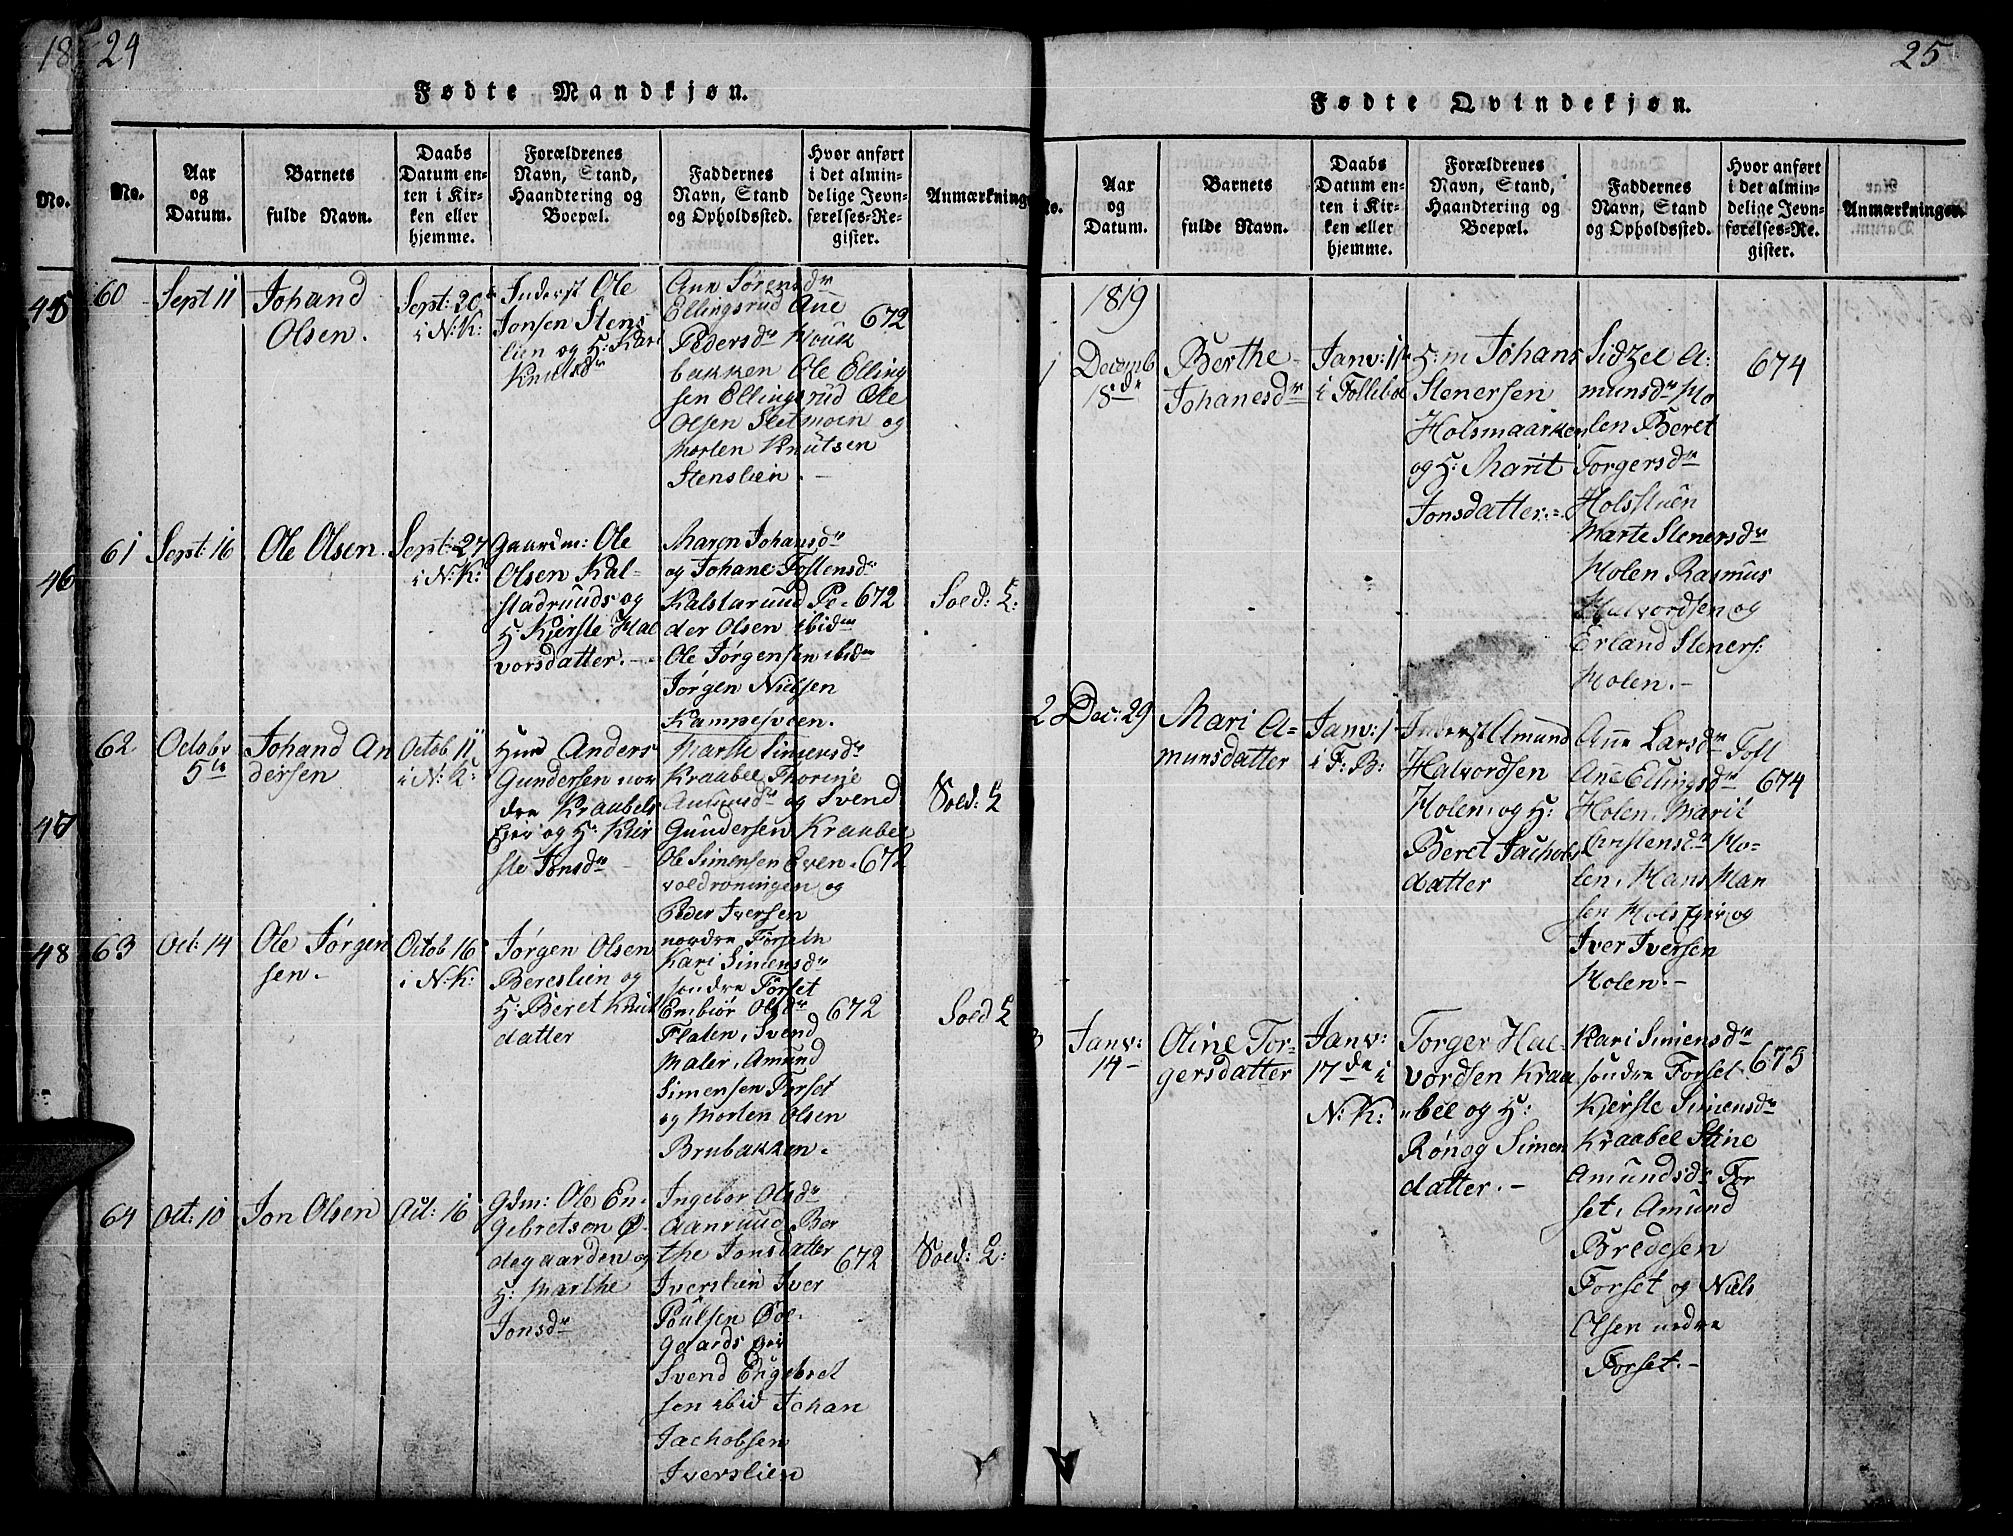 18
24
Fødte Mandkjøn.
No.
No.
Aar
og
Datum.
Barnets
fulde Navn.
Daabs
Datum en-
ten i Kir-
ken eller
hjemme.
Forældrenes
Navn, Stand,
Haandtering og
Boepæl.
Faddernes
Navn, Stand
og Opholdssted.
Hvor anført
i det almin-
delige Jevn-
førelses-Re-
gister.
Anmærkning
45
46
47
48
60
Sept 11
Johand
Olsen.
Sept: 20
i N: K:
Inderst Ole
Jonsen Stens
lien og H: Kari
Knutsdr
Ann Sørensdr
Ellingsrud Ane
Pedersdr Houk
bakken Ole Elling
sen Ellingsrud Ole
Olsen Sletmoen og
Morten Knutsen
Stenslien. -
672
61
Sept: 16
Ole Olsen.
Sept: 27
i N: K:
Gaardm: Ole
Olsen Kal-
stadruuds og
H: Kjerste Hal
vorsdatter. -
Maren Johansdr
og Johane Tostensdr
Kalstaruud Pe-
der Olsen ibidm
Ole Jørgensen ibidm
Jørgen Nielsen
Kampesveen.
672
Soed: L:
62
Octobr
5te
Johand An
dersen
Octob 11
i N: K:
Hmd Anders
Gundersen nor
dre Kraabels
Eier og H: Kier
ste Jonsdr -
Marte Simensdr
Kraabel Thorine
Amundsdr og Svend
Gundersen Kraabel
Ole Simensen Even
voldroningen og
Peder Iversen
nordre Forseth
672
Soed: L
63
Oct: 14
Ole Jørgen
sen. -
Octob 16
i N: K:
Jørgen Olsen
Bereslien og
H: Beret Knut
datter
Kari Simensdr
søndre Forset
Embiør Olsdr
Flaten, Svend
Maler, Amund
Simensen Forset
og Morten Olsen
Brubakken.
672
Soed L
64
Oct: 10
Jon Olsen
Oct: 16
Gdm: Ole En-
gebretsen Ø-
degaarden og
H: Marthe
Jonsdr
Ingebor Olsdr
aanruud Ber
the Jonsdatter
Iverslien Iver
Poulsen Øde-
gaards Eier
Svend Engebret
sen ibid Johan
Jachobsen
Iverslien
672
Soed: L:
25
Fødte Qvindekjøn.
No.
Aar
og
Datum.
Barnets
fulde Navn.
Daabs
Datum en-
ten i Kir-
ken eller
hjemme.
Forældrenes
Navn, Stand,
Haandtering og
Boepæl.
Faddernes
Navn, Stand
og Opholdssted.
Hvor anført
i det almin-
delige Jevn-
førelses-Re-
gister.
Anmærkninger.
1819
1
Decemb
18de
Berthe
Johanesdr
Janv: 1ste
i Folleboe
H: m Johans
Stenersen
Holsmaarken
og H: Marit
Jonsdatter. -
Sidzel A:
munsdr Ho
len Beret
Torgersdr
Holsstuen
Marte Stenersdr
Holen Rasmus
Halvordsen og
Erland Steners:
Holen. -
674
2
Dec: 29
Mari A-
munsdatter
Janv: 1
i F: B:
Inderst Amund
Halvordsen
Holen, og H:
Beret Jachobs
datter
Ane Larsdr
Ane Ellingsdr
Holen, Marit
Cristensdr Ho-
len, Hans Han
sen Hols Eier og
Iver Iversen
Holen. -
Foll
674
3
Janv:
14 -
Oline Tor-
gersdatter
Janv:
17de i
N: K:
Torger Hal-
vordsen Kraa
bel og H:
Rønog Simen
datter. -
Kari Simensdr
søndre Forset
Kjerste Simensdr
Kraabel Stine
Amundsdr For
set, Amund
Bredesen
Forset og Niels
Olsen nedre
Forset. -
675